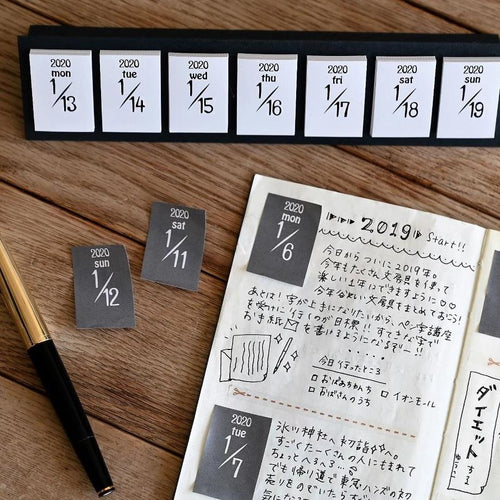 2020
mon
1/13
2020
tue
1/14
2020
wed
1/15
2020
thu
1/16
2020
fri
1/17
2020
sat
1/18
2020
sun
1/19
2020
sat
1/11
2020
sun
1/12
2020
mon
1/6
2019 Start!!
今日からついに2019年。
今年もたくさん文房具を使って
楽しい1年にできますように♡♡
あとは!字が上手になりたいから、ペン字講座
を受けに行くのが目標!!すてきな字で
お手紙を書けるようになるぞー!!
今日行ったところ
□おばあちゃんち □イオンモール
□おばさんのうち
2020
tue
1/7
氷川神社へ初詣へ。
すごくたくさんの人にもまれて
ちょっとへろへろ…
でも帰り道で東急ハンズの初
売りをのぞいた
ダイエット